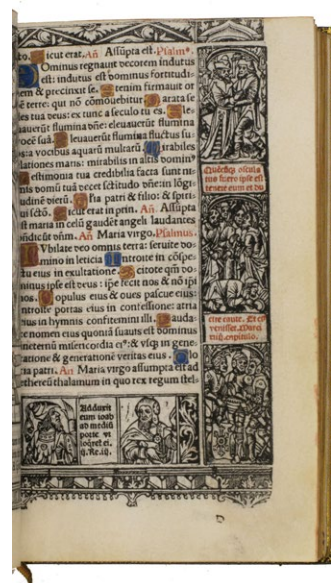 to. Sicut erat. Añ Assūpta est. Psalm⁹.
Dominus regnauit decorem indutus
est: indutus est dominus fortitudi-
nem & precinxit se. Etenim firmauit or
bē terre: qui nō cōmouebitur. Parata se
des tua deus: ex tunc a seculo tu es. Ele-
uauerūt flumina dñe: eleuauerūt flumina
vocē suā. Eleuauerūt flumina fluctus su-
os: a vocibus aquarū multarū. Mirabiles
elationes maris: mirabilis in altis domin⁹
Testimonia tua credibilia facta sunt ni-
mis domū tuā decet sctitudo dñe: in lōgi
tudinē dierū. Glia patri & filio: & spiri-
tui sctō. Sicut erat in prin. Añ Assūpta
est maria in celū gaudēt angeli laudantes
bñdicūt dñm. Añ Maria virgo. Psalmus.
Iubilate deo omnis terra: seruite do-
mino in leticia Introite in cōspe-
ctu eius in exultatione. Scitote qm̄ do-
minus ipse est deus: ipe fecit nos & nō ipi
nos. Populus eius & oues pascue eius:
introite portas eius in confessione: atria
eius in hymnis confitemini illi. Laudate
nomen eius quoniā suauis est dominus
in eternū misericordia ei⁹: & vsq; in gene-
ratione & generationē veritas eius. Glo
ria patri. Añ Maria virgo assumpta est ad
ethereū thalamum in quo rex regum stel-
Quēcūq; oscula
tus fuero ipse est
tenete eum et du
cite caute. Et cū
venisset. Marci
.xiiij. capitulo.
Adduxit
eum ioab
ad mediū
porte vt
loq̄ret ei.
ij. Re. iij.